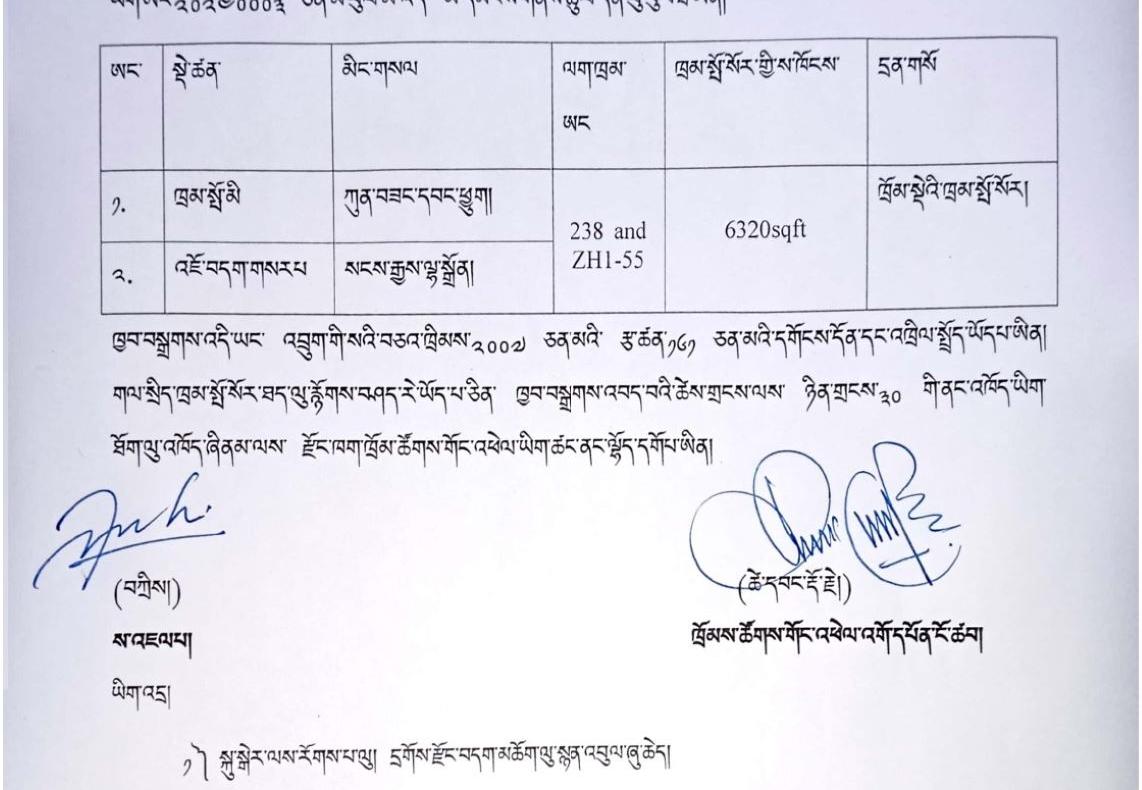 ཨང་ སྡེ་ཚན་ མིང་གསལ ལག་ཁྲམ་ ཁྲམ་སྤོ་སོར་གྱི་ས་ཁོངས་ དྲན་གསོ
ཨང
༡. ཁྲམ་སྤོ་མི ཀུན་བཟང་དབང་ཕྱུག། 238 and ZH1-55 6320sqft ཁྲོམ་སྡེའི་ཁྲམ་སྤོ་སོར།
༢. འཇོ་བདག་གསརཔ སངས་རྒྱས་ལྷ་སྒྲོན།
ཁྱབ་བསྒྲགས་འདི་ཡང་ འབྲུག་གི་སའི་བཅའ་ཁྲིམས་༢༠༠༧ ཅན་མའི་ རྩ་ཚན་༡༦༡ ཅན་མའི་དགོངས་དོན་དང་འཁྲིལ་སྤྲོད་ཡོདཔ་ཨིན།
གལ་སྲིད་ཁྲམ་སྤོ་སོར་ཐད་ལུ་རྙོགས་བཤད་རེ་ཡོད་པ་ཅིན་ ཁྱབ་བསྒྲགས་འབད་བའི་ཚེས་གྲངས་ལས་ ཉིན་གྲངས་༣༠ གི་ནང་འཁོད་ཡིག
ཐོག་ལུ་འཁོད་ཞིནམ་ལས་ རྫོང་ཁག་ཁྲོམ་ཚོགས་གོང་འཕེལ་ཡིག་ཚང་ནང་ལྷོད་དགོཔ་ཨིན།
(བཀྲིས།) (ཚེ་དབང་རྡོ་རྗེ།)
ས་འཇལཔ། ཁྲོམས་ཚོགས་གོང་འཕེལ་འགོ་དཔོན་ངོ་ཚབ།
ཡིག་འདྲ།
༡༽ སྐུ་སྒེར་ལས་རོགས་པ་ལུ། དྲགོས་རྫོང་བདག་མཆོག་ལུ་སྙན་འབུལ་ཞུ་ཆེད།